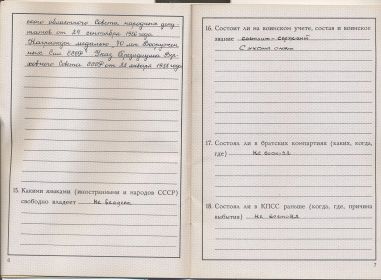 ского областного Совета народных депу-
татов от 29 сентября 1986 года.
Награжден медалью „70 лет Вооружен-
ных Сил СССР". Указ Президиума Вер-
ховного Совета СССР от 28 января 1988 года
15. Какими языками (иностранными и народов СССР)
свободно владеет не владеет
6
16. Состоит ли на воинском учете, состав и воинское
звание
17. Состоял ли в братских компартиях (каких, когда,
где) не состоял
18. Состоял ли в КПСС раньше (когда, где, причина
выбытия) не состоял
7